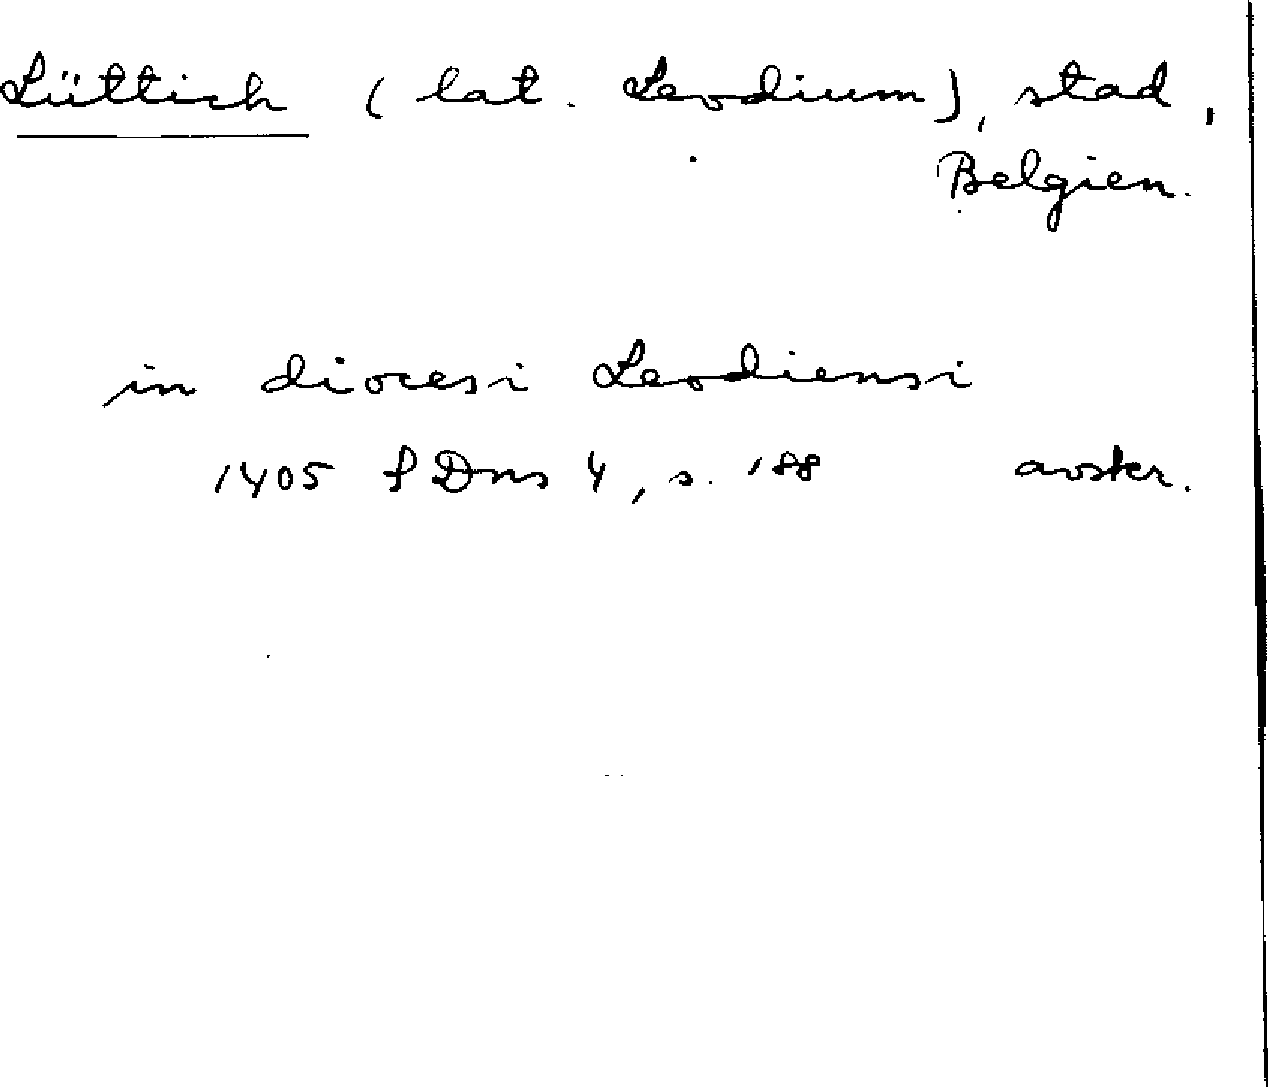 Lüttich (lat. Leodium), stad,
Belgien.
in diocesi Leodiensi
1405 f Dns 4, s. 188 avskr.